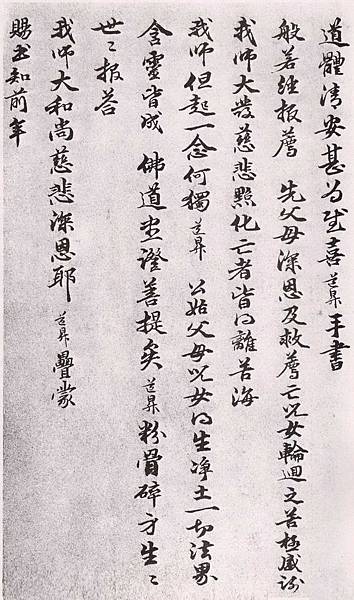 道體清安甚為生喜道昇手書
般若經報薦 先父母深恩及救薦亡兒女輪迴之苦極感謝
我師大發慈悲點化亡者皆得離苦海
我師但起一念何獨道昇 公姑父母兒女得生淨土一切法界
含靈皆成 佛道盡證菩提矣道昇粉骨碎身生〻
世〻報答
我師大和尚慈悲深恩耶道昇疊蒙
賜書知前年